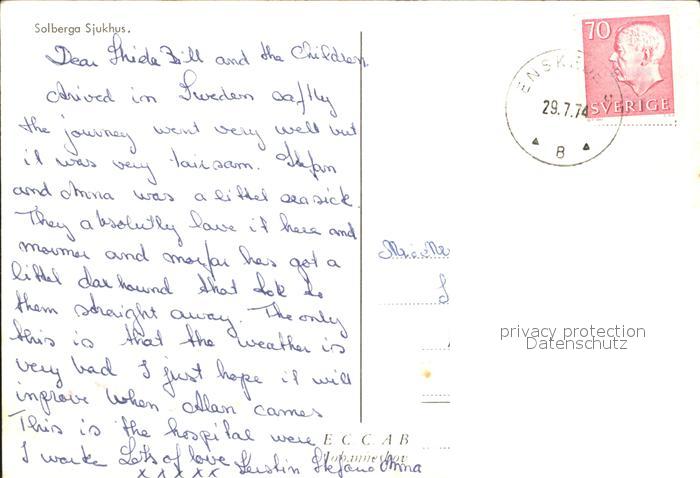 Solberga Sjukhus.
Dear Shiela Bill and the Children
Arived in Sweden safly
the journey went very well but
it was very tairsam. Stefan
and Anna was a littel seasick.
They absolutly love it here and
mormor and morfar has got a
littel dashound that tok to
them streight away. The only
this is that the weather is
very bad I just hope it will
inprove when Alan comes
This is the hospital were
I worke Lots of love Kerstin Stefan Anna
x x x x x
70
SVERIGE
ENSKEDE
29.7.74
8
Mr & Mr
privacy protection
Datenschutz
E C C A B
Johanneshov